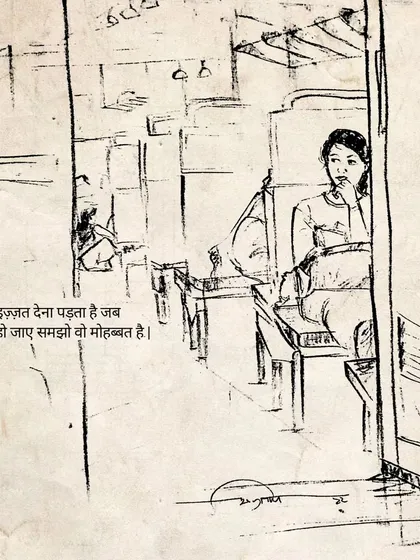 इज़्ज़त देना पड़ता है जब
हो जाए समझो वो मोहब्बत है |